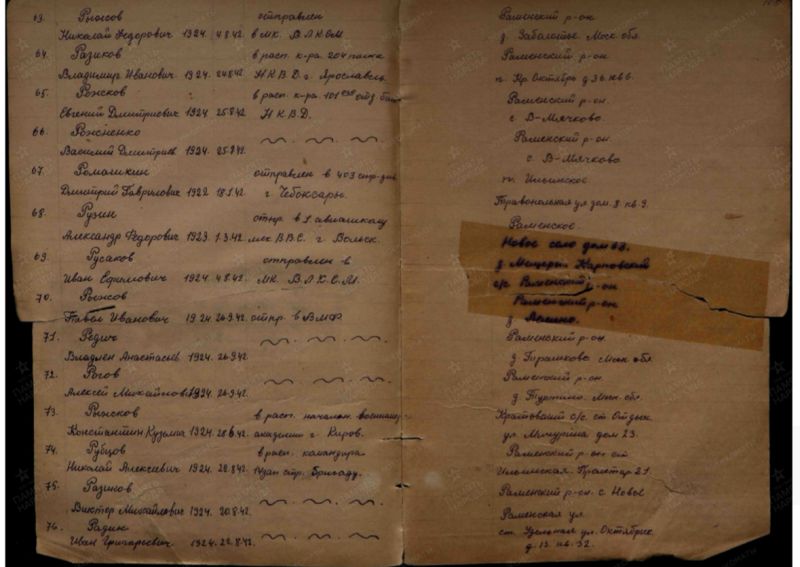 63. Рыжов
отправлен
Николай Федорович 1924. 4.8.42. в МК. В.Л.К.С.М.
64. Разиков
в расп. к-ра. 204 полка
Владимир Иванович 1924. 24.8.42. Н.К.В.Д. г. Ярославль.
65. Рожков
в расп. к-ра. 101 отд. бат.
Евгений Дмитриевич 1924. 25.8.42. Н К В Д.
66. Роженко
Василий Дмитриев 1924. 25.8.42.
67. Ромашкин
отправлен в 403 стр. див
Дмитрий Гаврилович 1922. 18.1.42. г. Чебоксары.
68. Рузин
отпр. в 1. авиашколу
Александр Федорович 1923. 1.3.42. В.В.С. г. Вольск.
69. Русаков
отправлен в
Иван Ефимович 1924. 4.8.42. МК. В.Л.К.С.М.
70. Рыжов
Павел Иванович 1924. 26.9.42. отпр. в ВМФ.
71. Редич
Владлен 1924. 26.9.42
72. Рогов
Алексей Михайлов 1924. 26.9.42.
73. Рысков
в расп. началон.
Константин Кузьмич 1924. 28.6.42. академии г. Киров.
74. Рубцов
в расп. командира
Николай Алексеевич 1924. 22.8.42. стр. бригаду.
75. Разинов
Виктор Михайлович 1924. 20.8.42.
76. Радин
Иван Григорьевич 1924. 22.8.42.
Раменский р-он
д. Заболотье Моск обл.
Раменский р-он.
п. Кр. Октябрь д 36 кв 6.
Раменский р-он.
с В-Мячково.
Раменский р-он.
с. В-Мячково
п. Ильинское
ул дом. 8 кв 9.
Раменское.
Новое село дом 63.
д Мещеры Карповский
с/с Раменский р-он
Раменский р-он
д
Раменский р-он.
д. Моск обл
Раменский р-он.
д. Моск. обл.
Кратовский с/с. ст Отдых
ул. Мичурина дом 23.
Раменский р-он ст
Ильинская. 21.
Раменский р-он. с Новое
Раменская ул.
ст. Удельная ул. Октябрьс
д. 13 кв. 32.